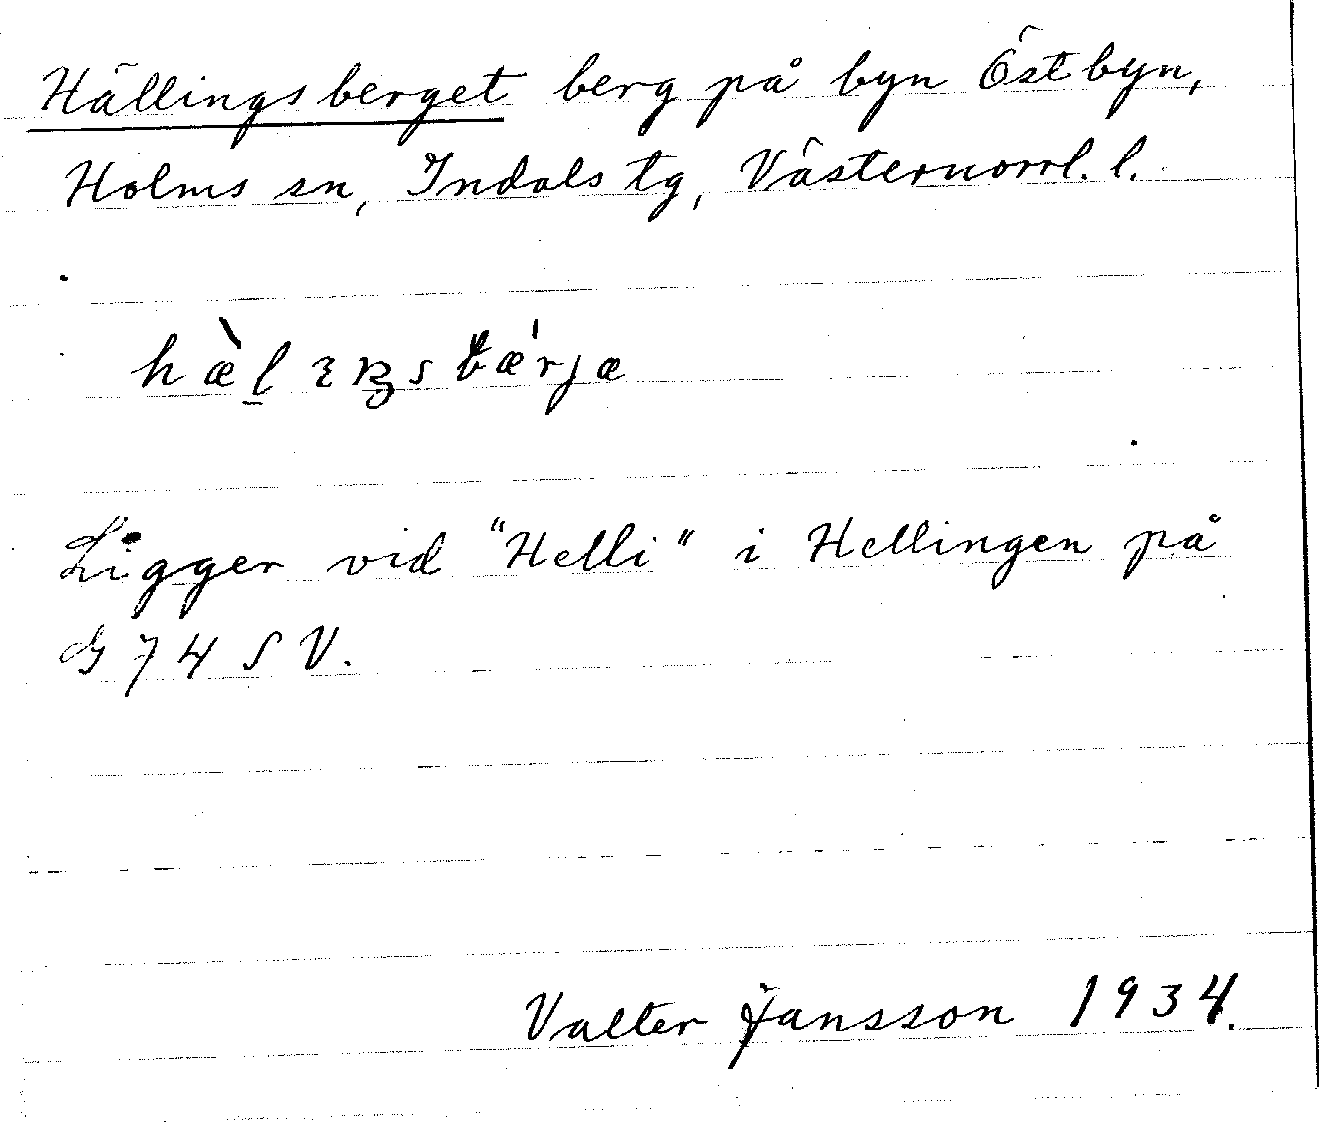 Hällingsberget berg på byn Östbyn,
Holms sn, Indals tg, Västernorrl. l.
Ligger vid "Helli" i Hellingen på
G 74 SV.
Valter Jansson 1934.